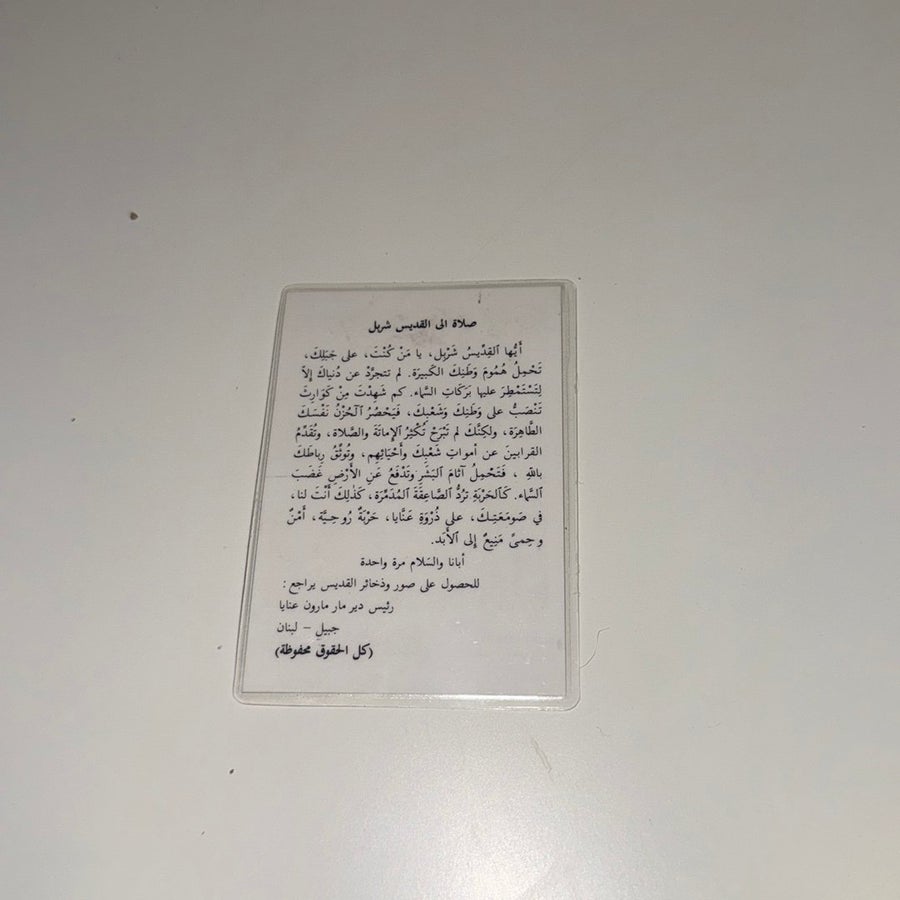 صلاة الى القديس شربل
أَيُّها ٱلقِدِّيسُ شَرْبِل، يا مَنْ كُنْتَ، على جَبَلِكَ،
تَحْمِلُ هُمُومَ وَطَنِكَ الكَبيرَة. لم تتجرَّدْ عن دُنياكَ إلاَّ
لِتَسْتَمْطِرَ عليها بَرَكاتِ السَّماء. كم شَهِدْتَ مِنْ كَوَارِثَ
تَنْصَبُّ على وَطَنِكَ وَشَعْبِكَ، فَيَحْصُرُ ٱلحُزْنُ نَفْسَكَ
الطَّاهِرَة، ولكِنَّكَ لم تَبْرَحْ تُكْثِرُ ٱلإماتَةَ والصَّلاة، وتُقَدِّمُ
القرابينَ عن أمواتِ شَعْبِكَ وأَحْيَائِهِم، وتُوثِّقُ رِباطَكَ
باللهِ ، فَتَحْمِلُ آثامَ ٱلبَشَرِ وتَدْفَعُ عَنِ الأَرْضِ غَضَبَ
ٱلسَّماء. كَٱلحَرْبَةِ تَرُدُّ ٱلصَّاعِقَةَ ٱلمُدَمِّرَة، كَذٰلِكَ أَنْتَ لنا،
في صَومَعَتِـكَ، على ذُرْوَةِ عَنَّايا، حَرْبَةٌ رُوحِيَّة، أَمْنٌ
وحِمىً مَنِيعٌ إلى ٱلأَبَد.
أبانا والسَلام مرة واحدة
للحصول على صور وذخائر القديس يراجع :
رئيس دير مار مارون عنايا
جبيل – لبنان
(كل الحقوق محفوظة)